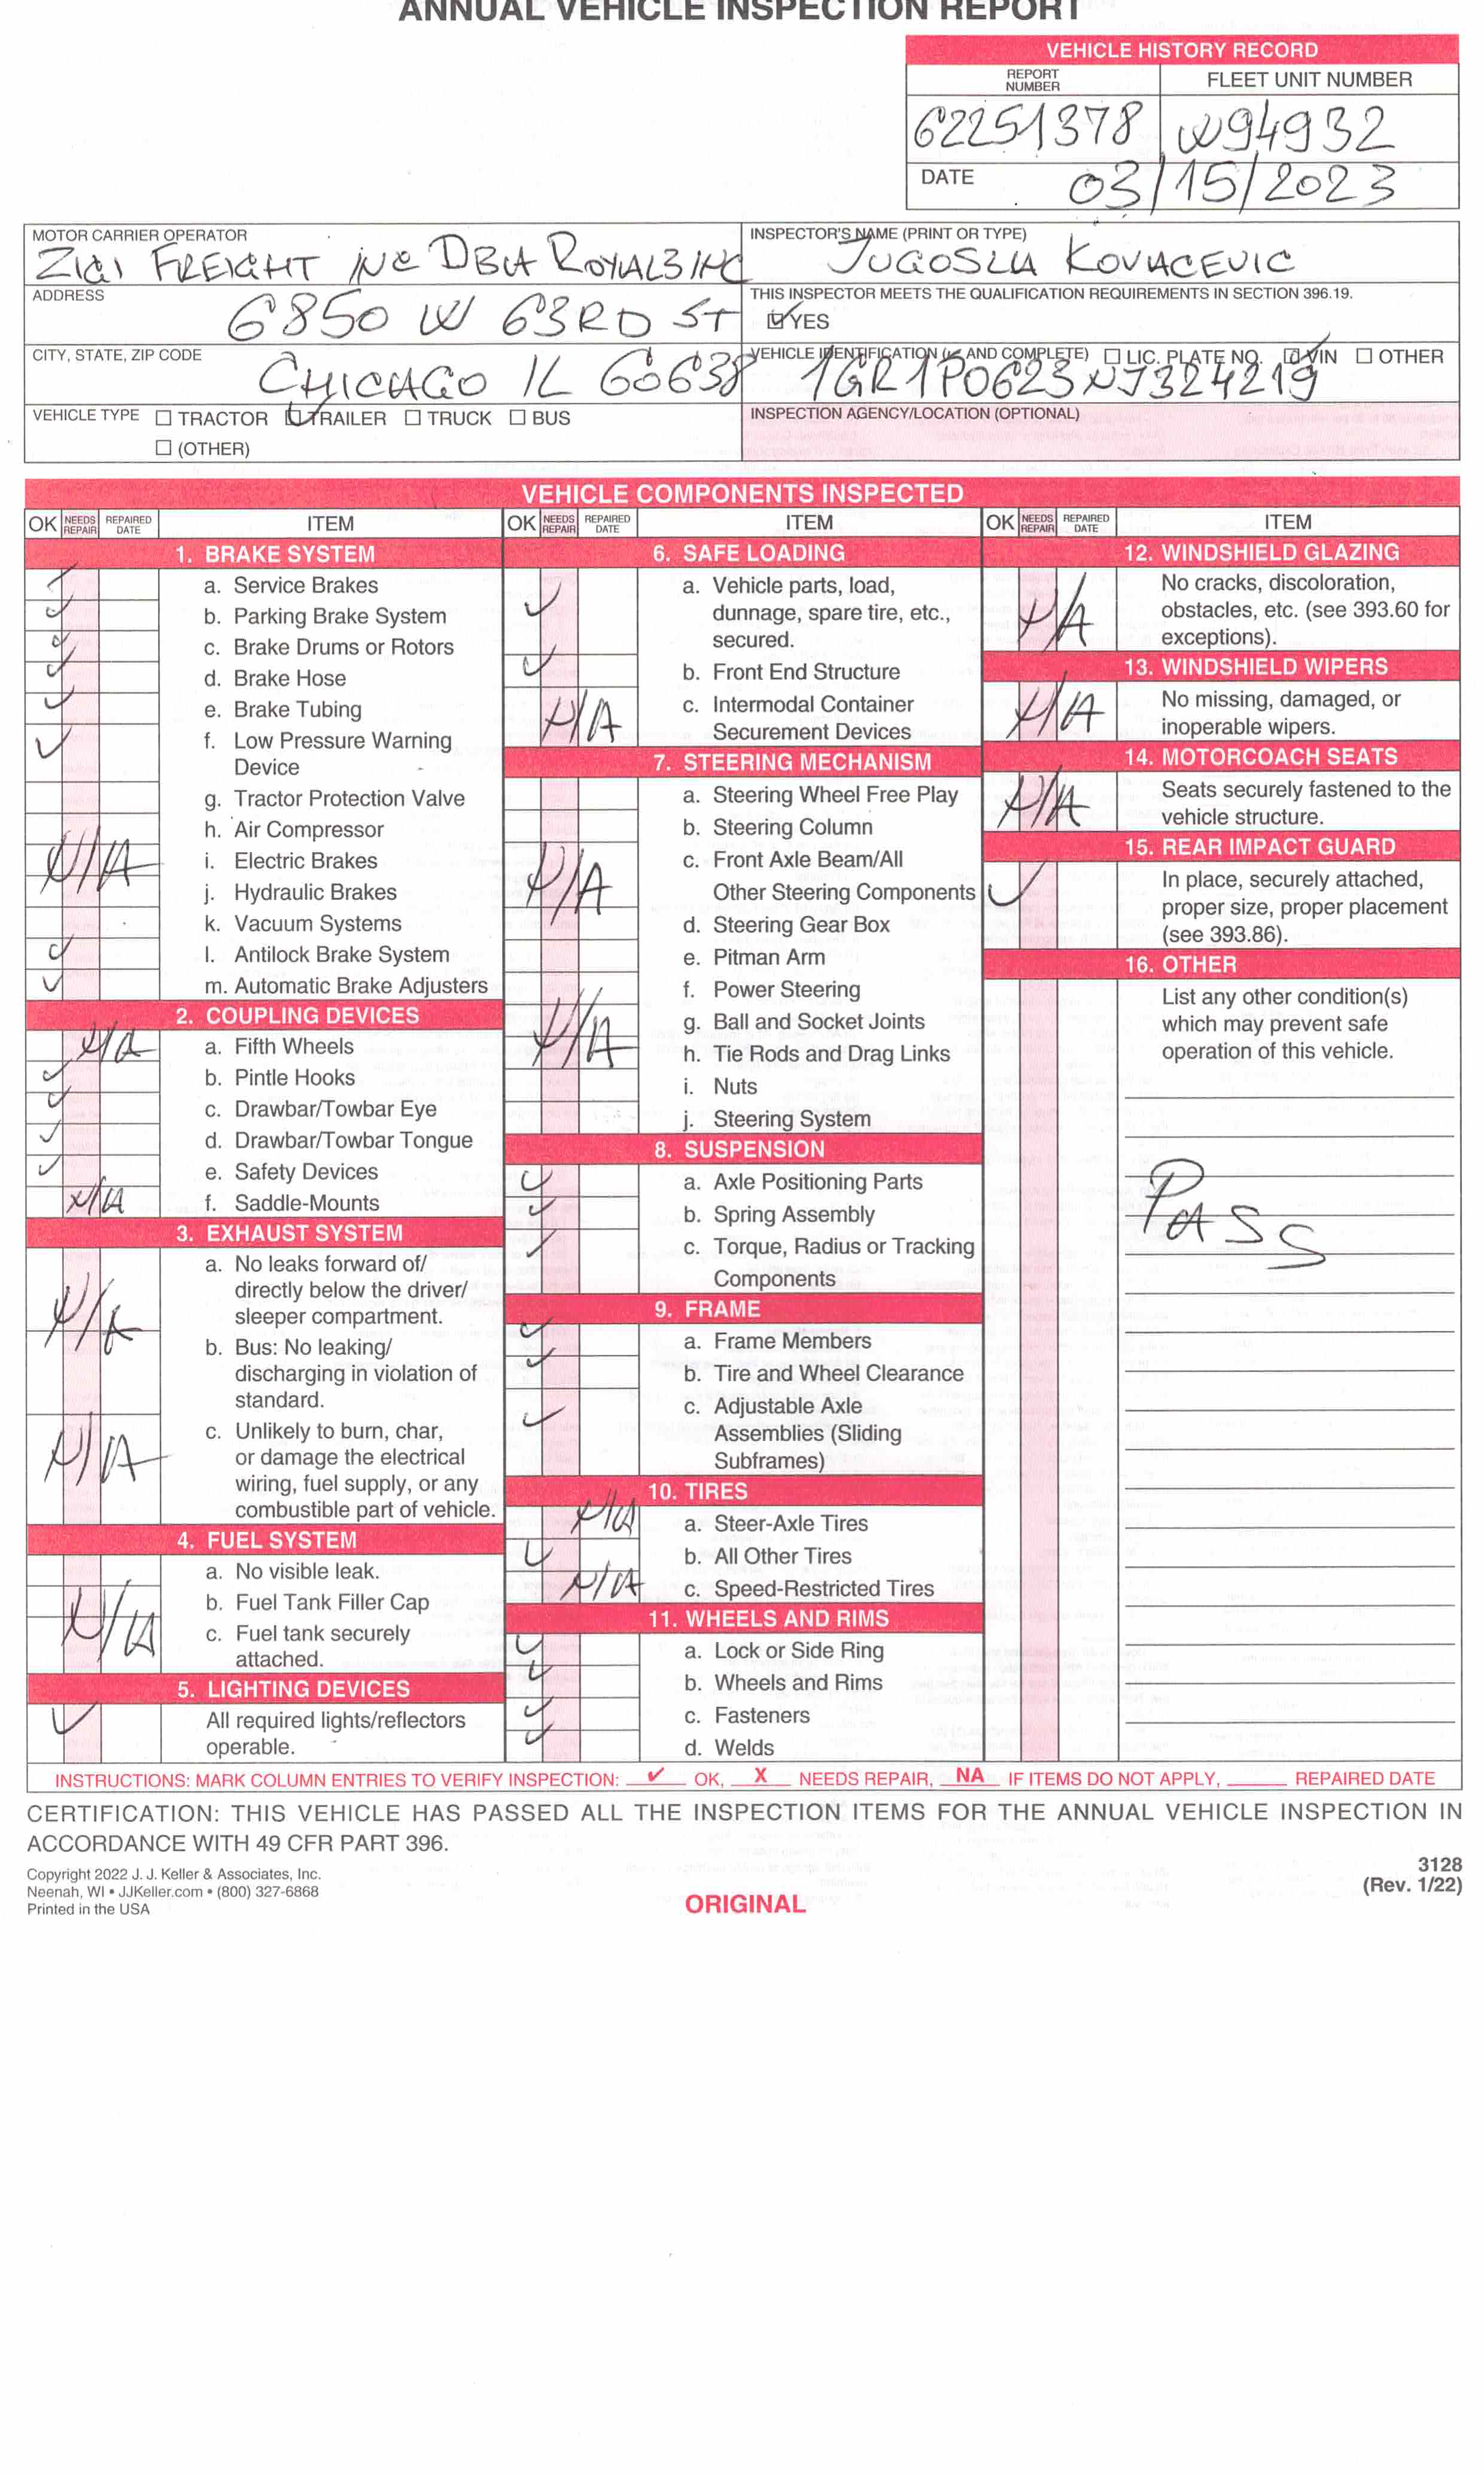 ANNUAL VEHICLE INSPECTION REPORT
VEHICLE HISTORY RECORD
REPORT NUMBER
FLEET UNIT NUMBER
62251378
W94932
DATE 03/15/2023
MOTOR CARRIER OPERATOR
ZIGI FREIGHT INC DBA ROYAL3 INC
INSPECTOR'S NAME (PRINT OR TYPE)
JUGOSLA KOVACEVIC
ADDRESS
6850 W 63RD ST
THIS INSPECTOR MEETS THE QUALIFICATION REQUIREMENTS IN SECTION 396.19.
☑ YES
CITY, STATE, ZIP CODE
CHICAGO IL 60638
VEHICLE IDENTIFICATION (✓ AND COMPLETE) ☐ LIC. PLATE NO. ☑ VIN ☐ OTHER
1GR1P0623NJ324219
VEHICLE TYPE ☐ TRACTOR ☑ TRAILER ☐ TRUCK ☐ BUS
☐ (OTHER)
INSPECTION AGENCY/LOCATION (OPTIONAL)
VEHICLE COMPONENTS INSPECTED
OK NEEDS REPAIR REPAIRED DATE ITEM
1. BRAKE SYSTEM
✓ a. Service Brakes
✓ b. Parking Brake System
✓ c. Brake Drums or Rotors
✓ d. Brake Hose
✓ e. Brake Tubing
✓ f. Low Pressure Warning
Device
g. Tractor Protection Valve
h. Air Compressor
N/A i. Electric Brakes
j. Hydraulic Brakes
k. Vacuum Systems
✓ l. Antilock Brake System
✓ m. Automatic Brake Adjusters
2. COUPLING DEVICES
N/A a. Fifth Wheels
✓ b. Pintle Hooks
✓ c. Drawbar/Towbar Eye
✓ d. Drawbar/Towbar Tongue
✓ e. Safety Devices
N/A f. Saddle-Mounts
3. EXHAUST SYSTEM
a. No leaks forward of/
directly below the driver/
sleeper compartment.
N/A
b. Bus: No leaking/
discharging in violation of
standard.
c. Unlikely to burn, char,
N/A or damage the electrical
wiring, fuel supply, or any
combustible part of vehicle.
4. FUEL SYSTEM
a. No visible leak.
b. Fuel Tank Filler Cap
N/A c. Fuel tank securely
attached.
5. LIGHTING DEVICES
✓ All required lights/reflectors
operable.
OK NEEDS REPAIR REPAIRED DATE ITEM
6. SAFE LOADING
✓ a. Vehicle parts, load,
dunnage, spare tire, etc.,
secured.
✓ b. Front End Structure
N/A c. Intermodal Container
Securement Devices
7. STEERING MECHANISM
a. Steering Wheel Free Play
b. Steering Column
N/A c. Front Axle Beam/All
Other Steering Components
d. Steering Gear Box
e. Pitman Arm
f. Power Steering
N/A g. Ball and Socket Joints
h. Tie Rods and Drag Links
i. Nuts
j. Steering System
8. SUSPENSION
✓ a. Axle Positioning Parts
✓ b. Spring Assembly
✓ c. Torque, Radius or Tracking
Components
9. FRAME
✓ a. Frame Members
✓ b. Tire and Wheel Clearance
✓ c. Adjustable Axle
Assemblies (Sliding
Subframes)
10. TIRES
N/A a. Steer-Axle Tires
✓ b. All Other Tires
N/A c. Speed-Restricted Tires
11. WHEELS AND RIMS
✓ a. Lock or Side Ring
✓ b. Wheels and Rims
✓ c. Fasteners
✓ d. Welds
OK NEEDS REPAIR REPAIRED DATE ITEM
12. WINDSHIELD GLAZING
No cracks, discoloration,
N/A obstacles, etc. (see 393.60 for
exceptions).
13. WINDSHIELD WIPERS
N/A No missing, damaged, or
inoperable wipers.
14. MOTORCOACH SEATS
N/A Seats securely fastened to the
vehicle structure.
15. REAR IMPACT GUARD
✓ In place, securely attached,
proper size, proper placement
(see 393.86).
16. OTHER
List any other condition(s)
which may prevent safe
operation of this vehicle.
PASS
INSTRUCTIONS: MARK COLUMN ENTRIES TO VERIFY INSPECTION: ✓ OK, X NEEDS REPAIR, NA IF ITEMS DO NOT APPLY, ____ REPAIRED DATE
CERTIFICATION: THIS VEHICLE HAS PASSED ALL THE INSPECTION ITEMS FOR THE ANNUAL VEHICLE INSPECTION IN
ACCORDANCE WITH 49 CFR PART 396.
Copyright 2022 J. J. Keller & Associates, Inc.
Neenah, WI • JJKeller.com • (800) 327-6868
Printed in the USA
ORIGINAL
3128
(Rev. 1/22)